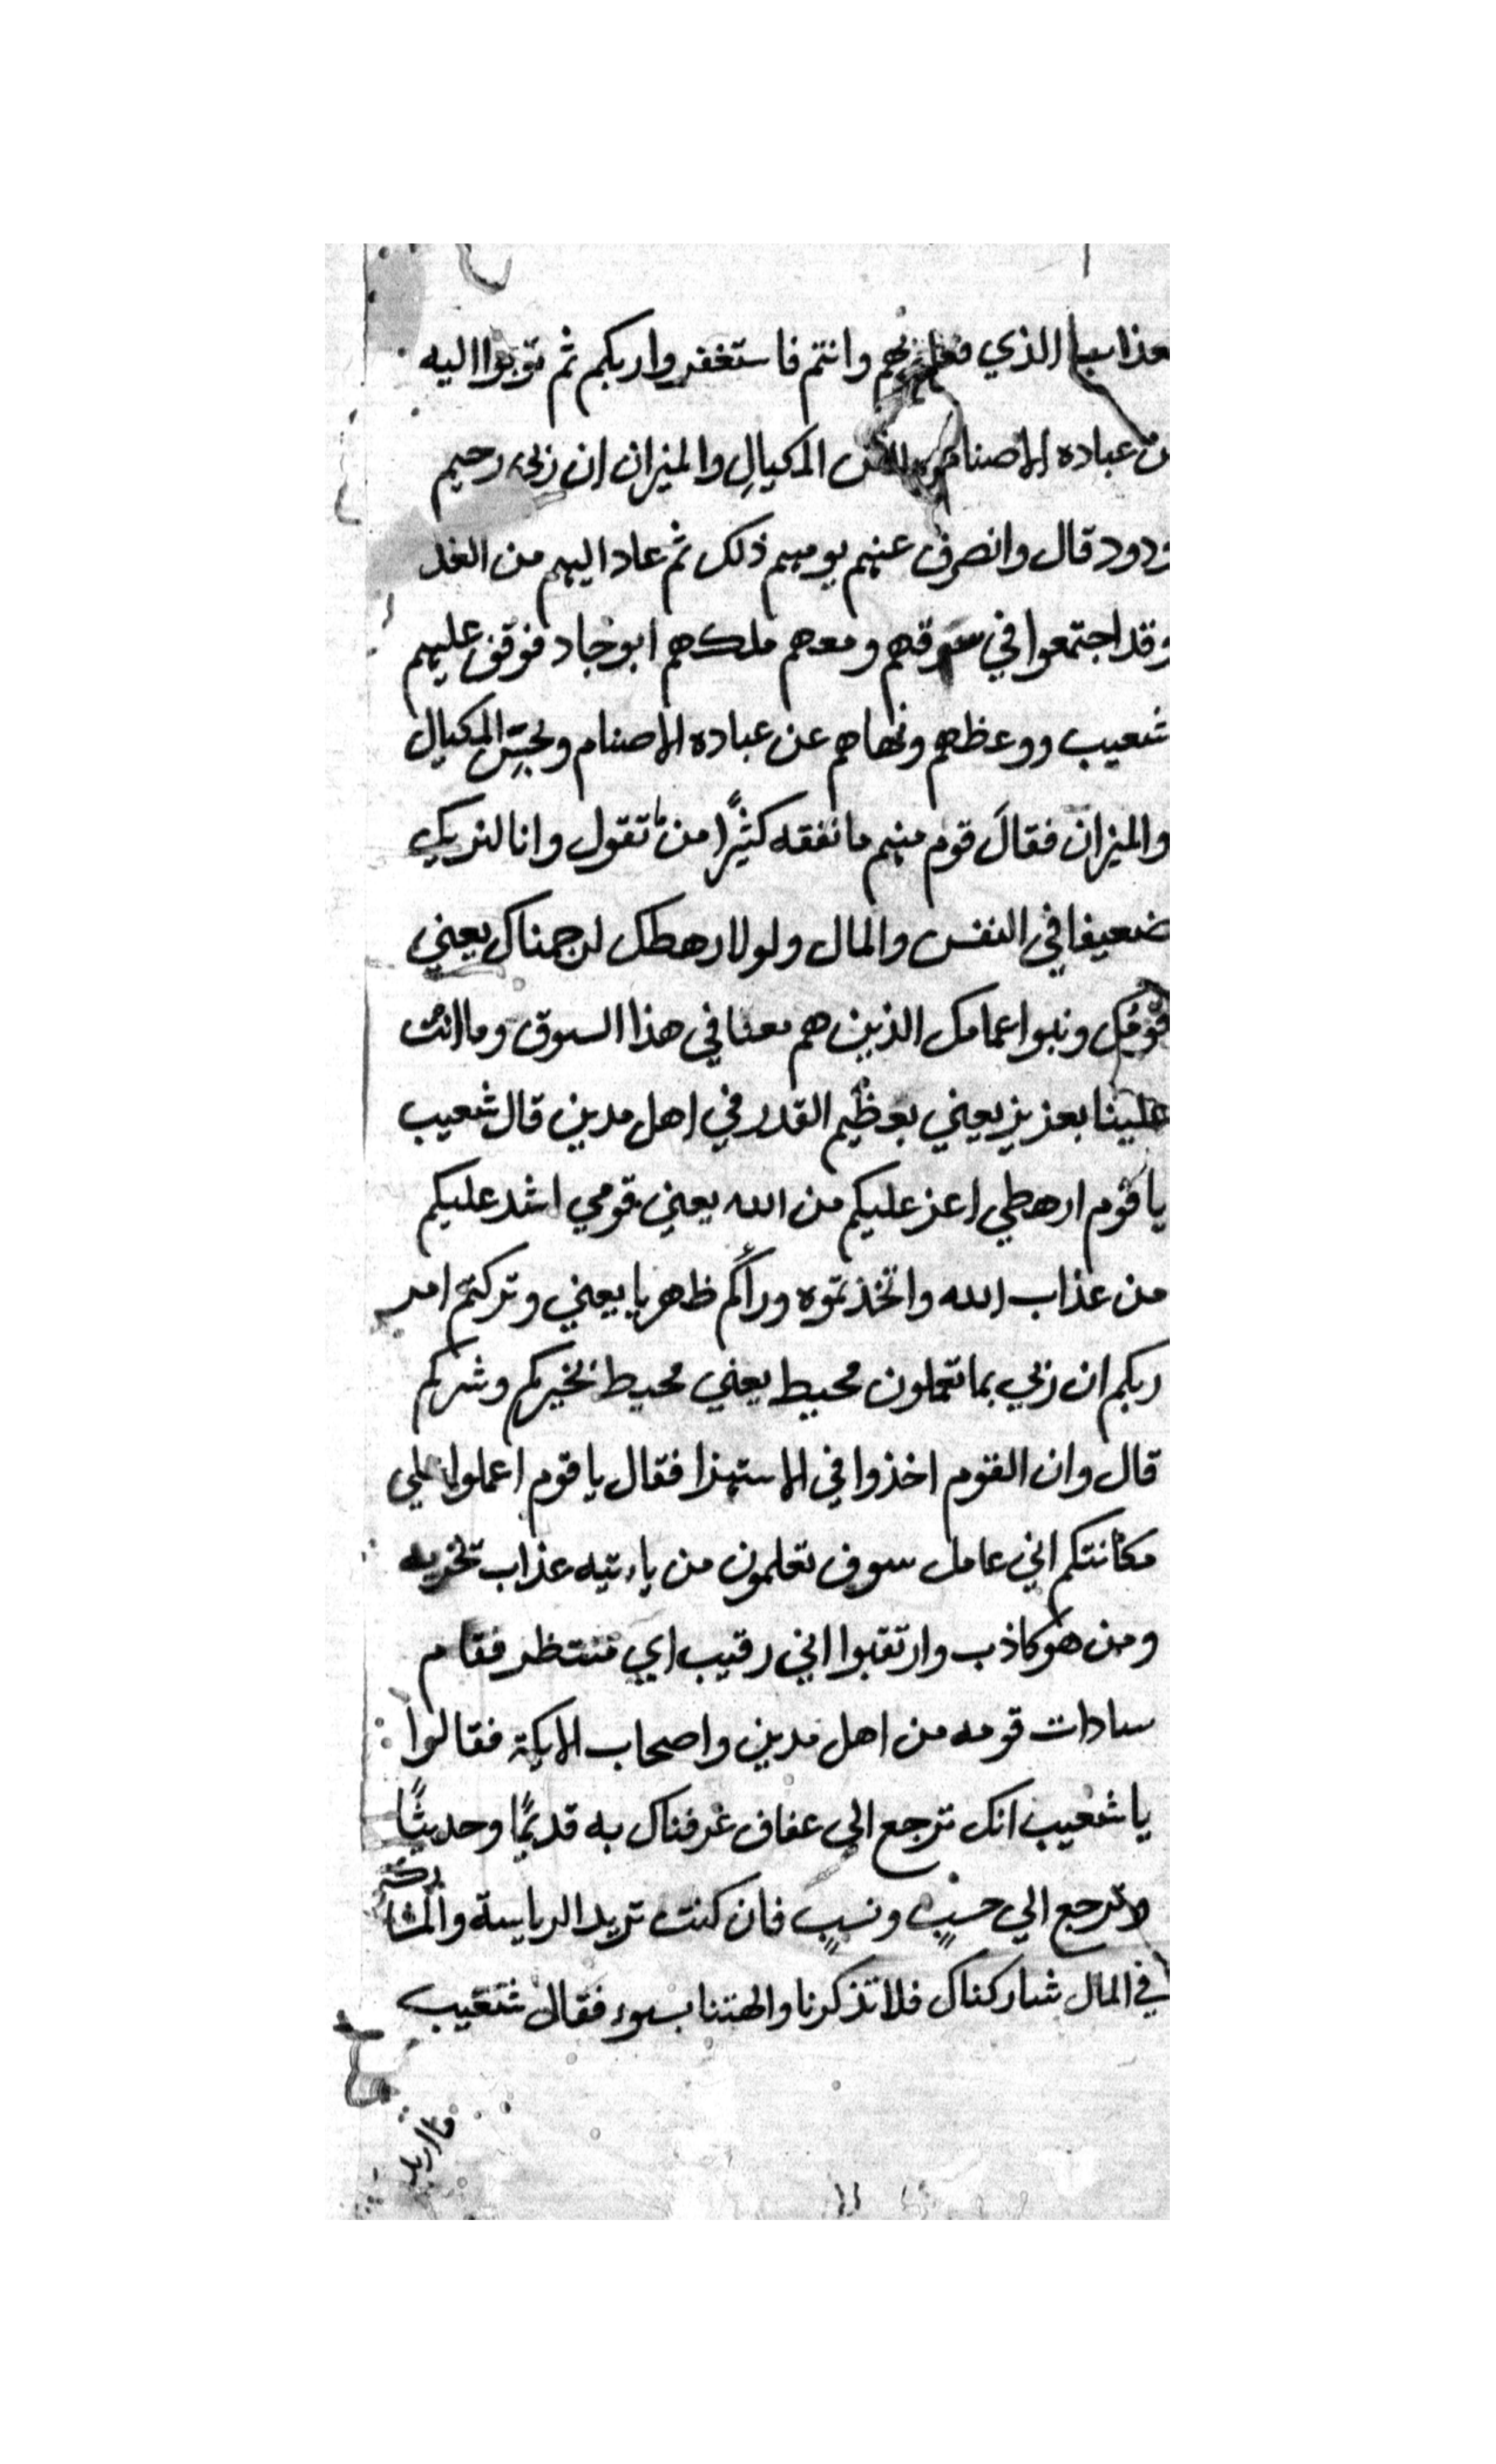 عذابها الذي فعل بهم وانتم فاستغفروا ربكم ثم توبوا اليه
من عباده الاصنام المكيال والميزان ان ربي رحيم
ودود قال وانصرف عنهم يومهم ذلك ثم عاد اليهم من الغد
وقد اجتمعوا في سوقهم ومعهم ملكهم ابوجاد فوقف عليهم
شعيب ووعظهم ونهاهم عن عباده الاصنام وبخس المكيال
والميزان فقالَ قوم منهم ما نفقه كثيرًا من ما تقول وانا لنريك
ضعيفا في النفس والمال ولولا رهطك لرجمناك يعني
قومك وبنوا عمامك الذين هم معنا في هذا السوق وما انت
علينا بعزيز يعني بعظيم القدر في اهل مدين قال شعيب
يا قوم ارهطي اعز عليكم من الله يعني قومي اشد عليكم
من عذاب الله واتخذتموه ورآكم ظهريا يعني وتركتم امر
ربكم ان ربي بما تعملون محيط يعني محيط بخيركم وشركم
قال وان القوم اخذوا في الاستهزا فقال يا قوم اعملوا علي
مكانتكم اني عامل سوف تعلمون من ياءتيه عذاب تخزيه
ومن هو كاذب وارتقبوا اني رقيب اي منتظر فقام
سادات قومه من اهل مدين واصحاب الايكة فقالوا
يا شعيب انك ترجع الي عفاف عرفناك به قديمًا وحديثًا
لا ترجع الي حسبٍ ونسبٍ فان كنت تريد الرياسة والمشاركة
في المال شاركناك فلا تذكرنا والهتنا بسوء فقال شعيب
ما اريد